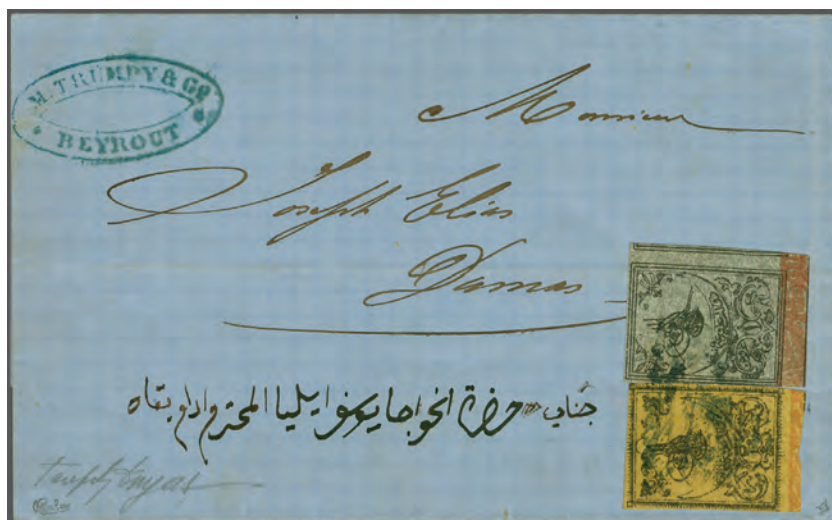 M. TRÜMPY & Cº
BEYROUT
Monsieur
Joseph Elias
Damas
جناب حضرة الخواجا يوسف ايليا المحترم دام بقاه